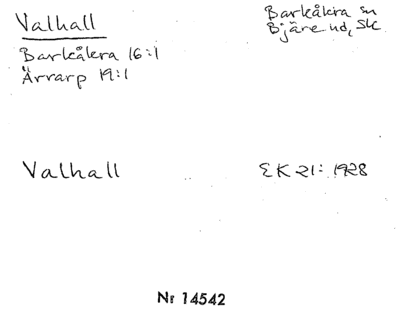 Valhall
Barkåkra sn
Bjäre hd, Sk
Barkåkra 16:1
Ärrarp 19:1
Valhall
EK 21: 1928
Nr 14542